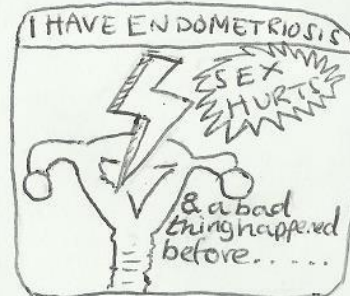 I HAVE ENDOMETRIOSIS
SEX
HURTS
& a bad
thing happened
before.....